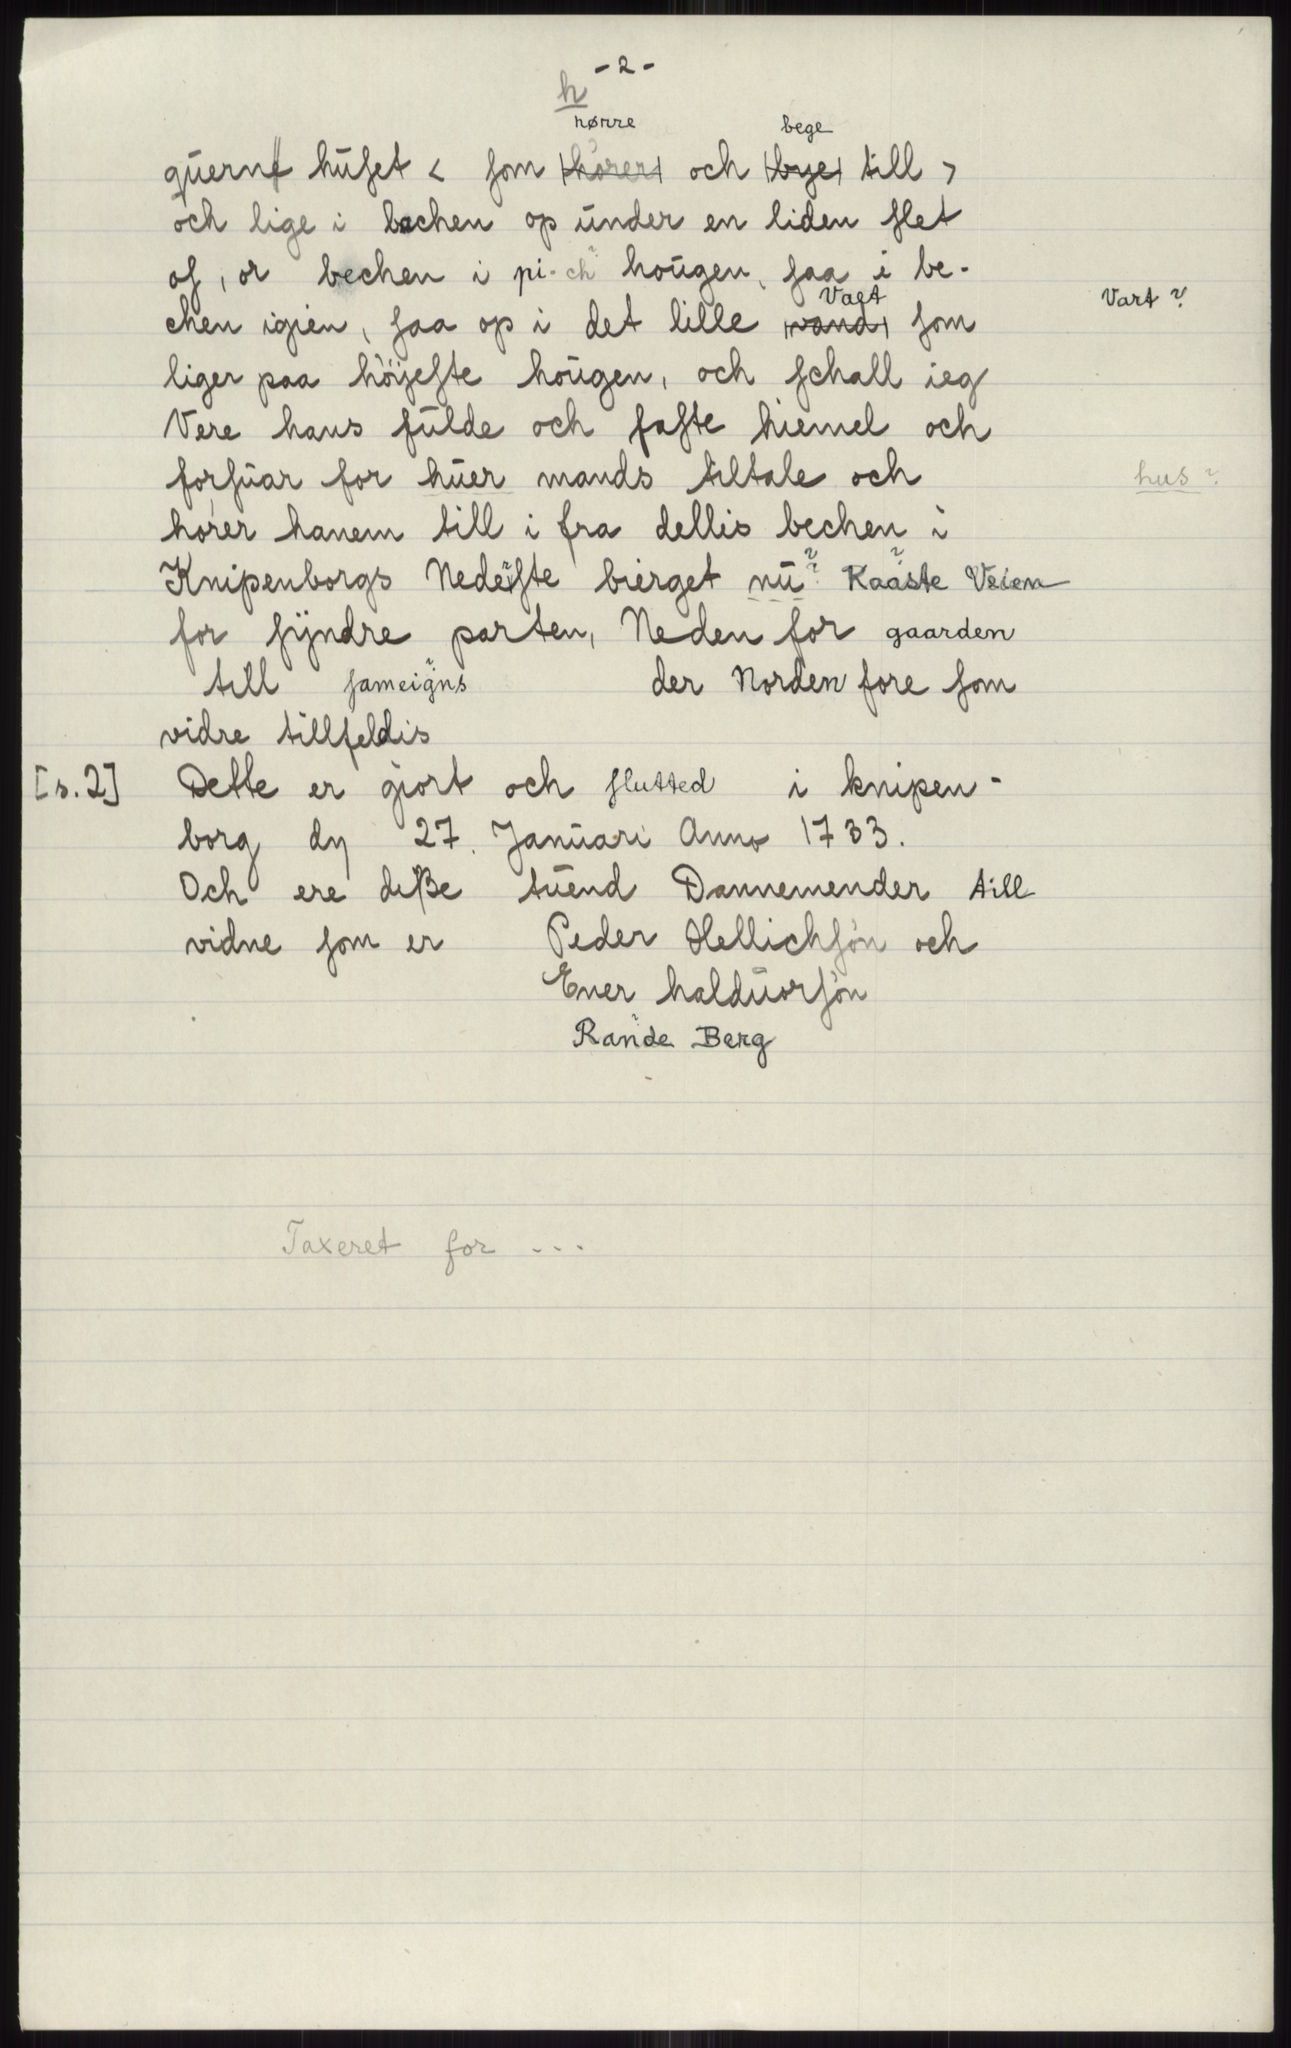 - 2 -
h
nørre bege
qūern huset < som hörer och bye till >
och lige i bachen op ūnder en liden slet
of, or bechen i pi-ch hoūgen, saa i be-
Vaet
chen igien, saa op i det lille vand som Vart ?
liger paa höyeste hoūgen, och schall ieg
Vere hans fūlde och faste hiemel och
forsūar for hūer mands tiltale och hus ?
hörer hanem till i fra dellis bechen i
Knipenborgs Nedeiste bierget nū ? Kaaste Veien
for syndre parten, Neden for gaarden
till sameigns der Norden fore som
vidre tillfeldis
[s. 2] Dette er giort och slutted i knipen-
borg dy 27. Janūari Anno 1733.
Och ere diße tūend Dannemender till
vidne som er Peder Hellichsön och
Ener haldūorsön
Rande Berg
Taxeret for ...